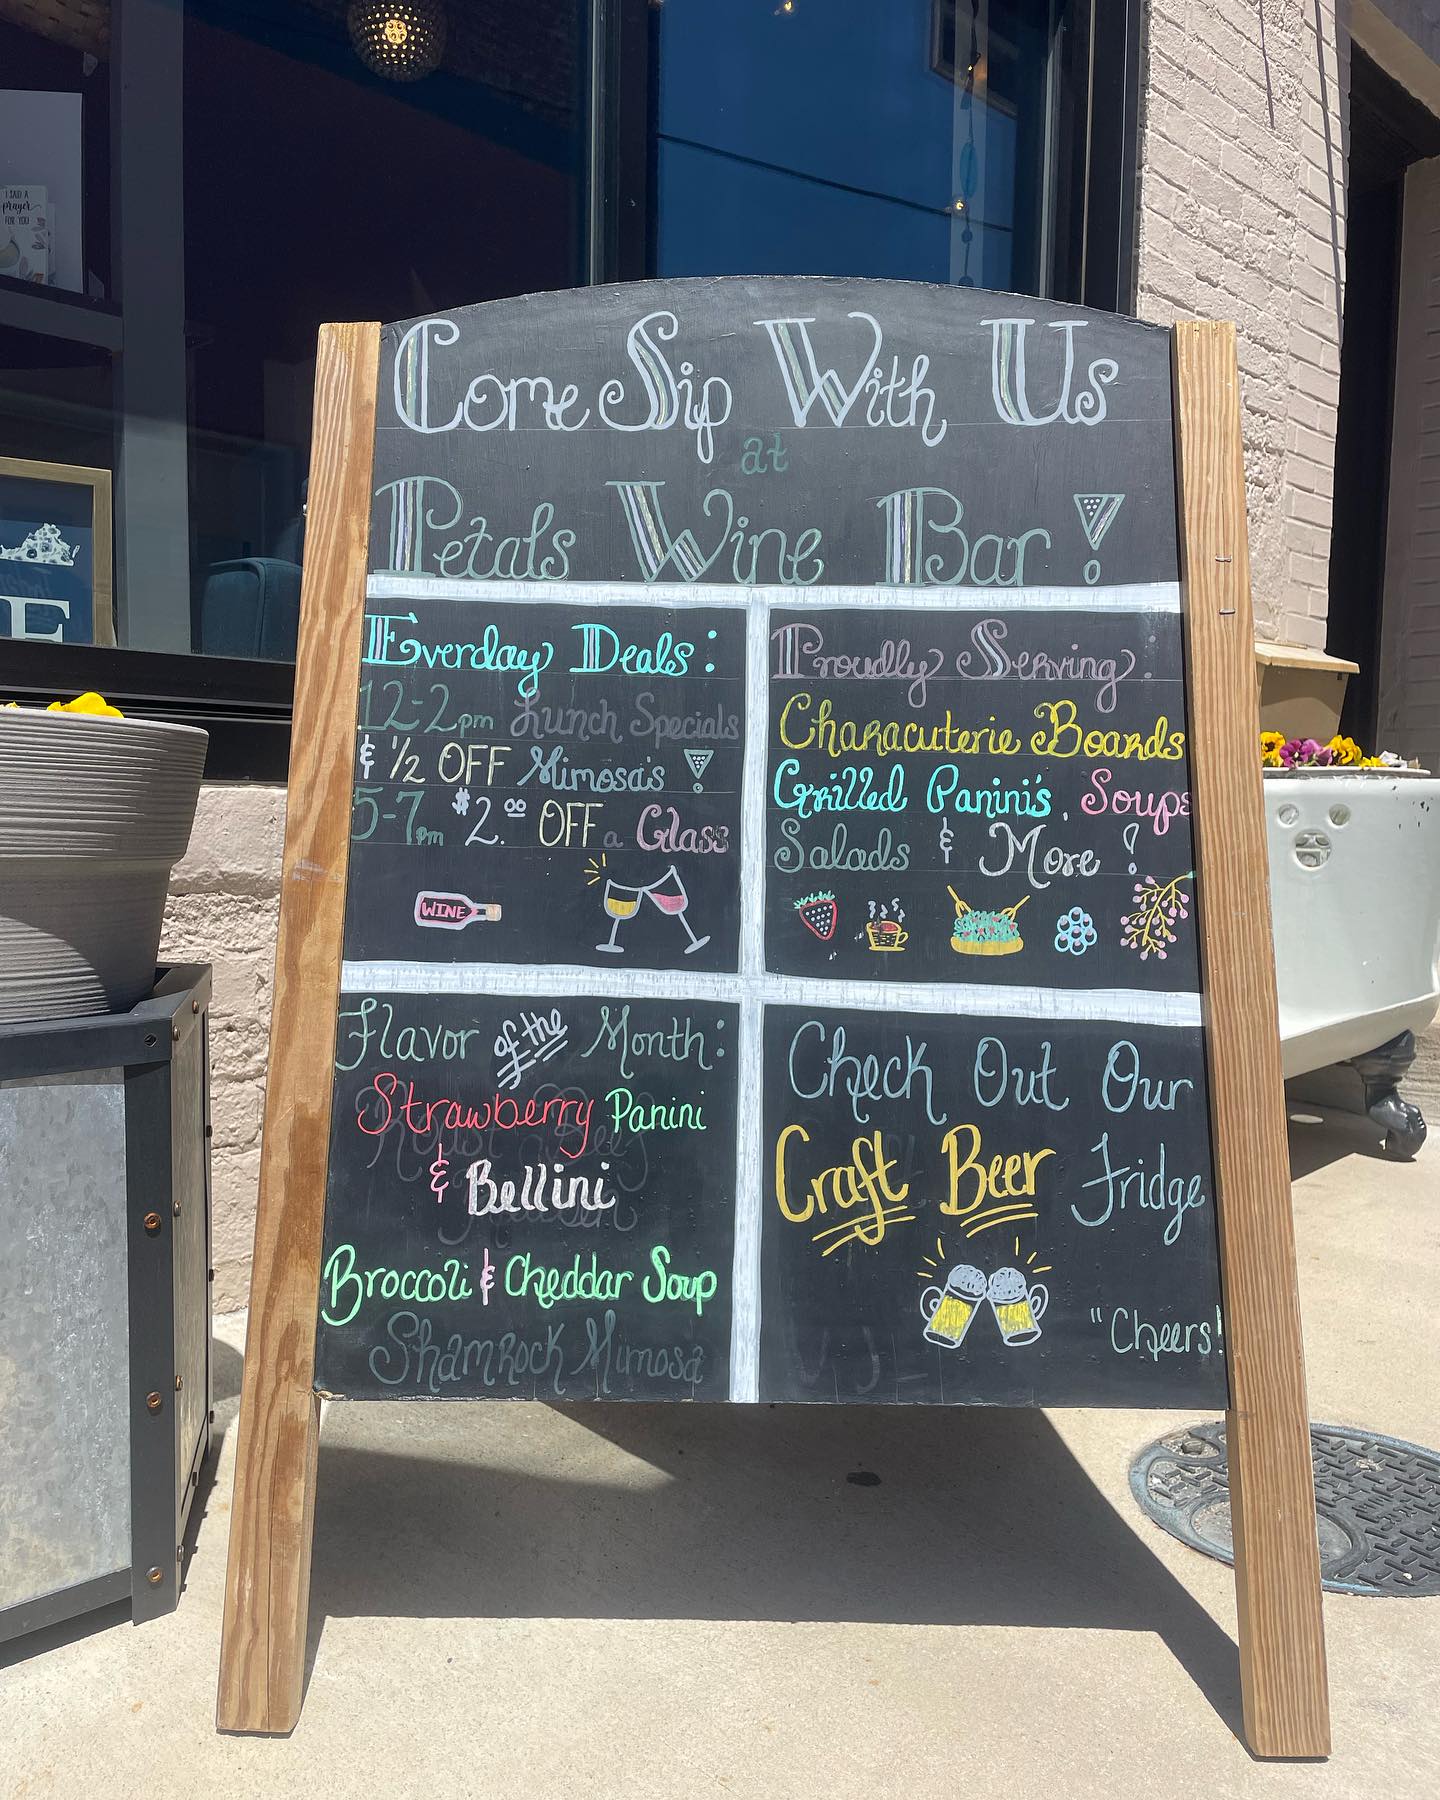 I SAID A
prayer
FOR YOU
Come Sip With Us
at
Petals Wine Bar!
Everday Deals:
12-2pm Lunch Specials
& 1/2 OFF Mimosa's !
5-7pm $2.00 OFF a Glass
WINE
Proudly Serving:
Characuterie Boards
Grilled Panini's, Soups
Salads & More!
Flavor of the Month:
Strawberry Panini
& Bellini
Broccoli & Cheddar Soup
Shamrock Mimosa
Check Out Our
Craft Beer Fridge
"Cheers!